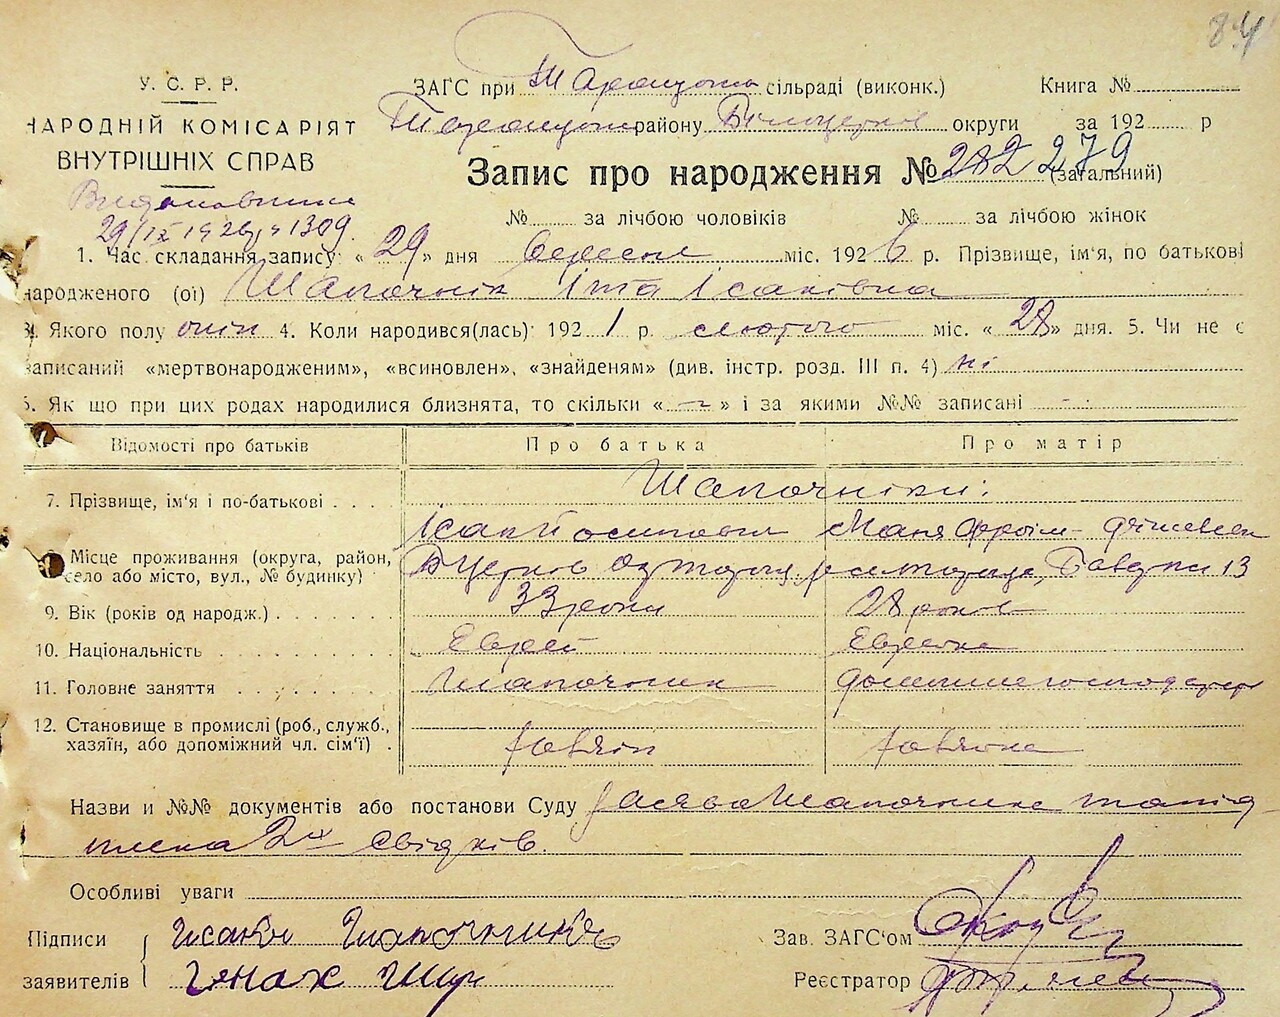 84
У. С. Р. Р.
НАРОДНІЙ КОМІСАРІЯТ
ВНУТРІШНІХ СПРАВ
29/IX 1926 р № 1309.
ЗАГС при Таращан. сільраді (виконк.) Книга №
Таращан. району Білоцерків. округи за 192 р
Запис про народження № 282 279 (загальний)
№ за лічбою чоловіків № за лічбою жінок
1. Час складання запису: « 29 » дня вересня міс. 192 6 р. Прізвище, ім'я, по батькові
народженого (ої) Шапочнік Іта Ісаківна
3. Якого полу жін 4. Коли народився(лась): 192 1 р. лютого міс. « 28 » дня. 5. Чи не є
записаний «мертвонародженим», «всиновлен», «знайденям» (див. інстр. розд. III п. 4) ні
6. Як що при цих родах народилися близнята, то скільки « — » і за якими №№ записані -
Відомості про батьків Про батька Про матір
7. Прізвище, ім'я і по-батькові Шапочніки:
Ісак Йосипович Маня Фроїм-
8. Місце проживання (округа, район, село або місто, вул., № будинку) Б Церків. 13
9. Вік (років од народж.) 33 роки 28 років
10. Національність Єврей Єврейка
11. Головне заняття Шапочник домашнє господар
12. Становище в промислі (роб., служб., хазяїн, або допоміжний чл. сім'ї)
Назви и №№ документів або постанови Суду Заява Шапочника та під
писка 2х свідків.
Особливі уваги
Підписи заявителів Исаак Шапочник Зав. ЗАГС'ом
Генах Шур Реєстратор